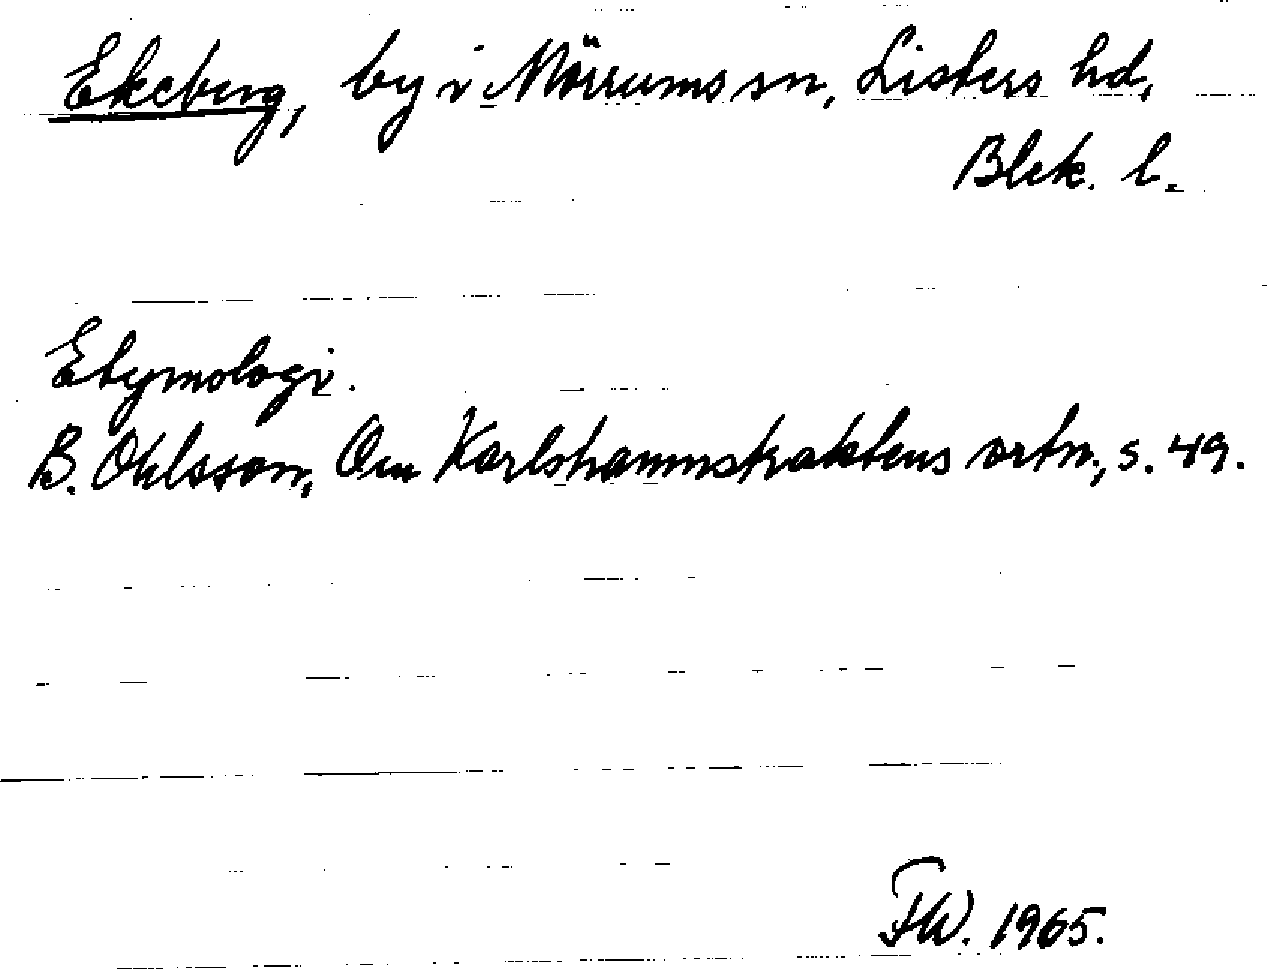 Ekeberg, by i Mörrums sn, Listers hd,
Blek. l.
Etymologi.
B. Ohlsson, Om Karlshamnstraktens ortn., s. 49.
FW. 1965.